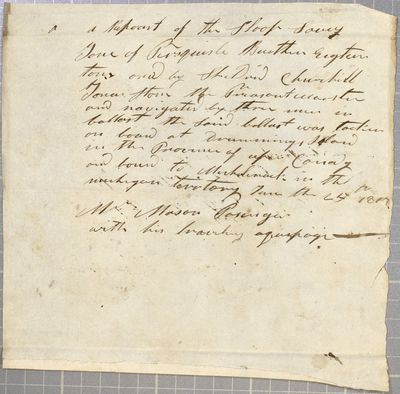 a Report of the Sloop Savey
Jane of Presquisle Burthen Eighteen
tons ownd by Sheldind Churchill
Jonas Stone the Present master
and navigated by three men in
ballast the said ballast was taken
on board at Drummins Island
in the Province of upper Canady
and bound to Mackinack in the
michigan Teretory June the 25th
Mr Mason Pasinger
with his traveling aquipage